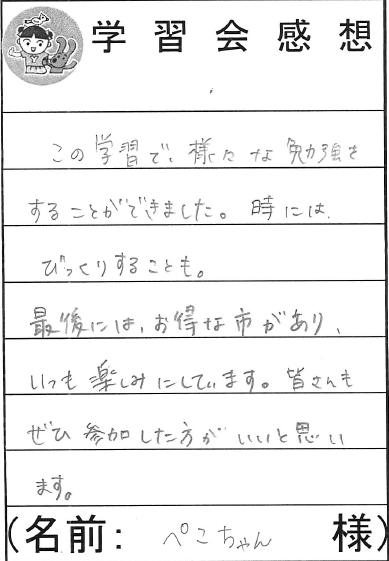 学習会感想
この学習で、様々な勉強を
することができました。時には、
びっくりすることも。
最後には、お得な市があり、
いつも楽しみにしています。皆さんも
ぜひ参加した方がいいと思い
ます。
(名前: ぺこちゃん 様)